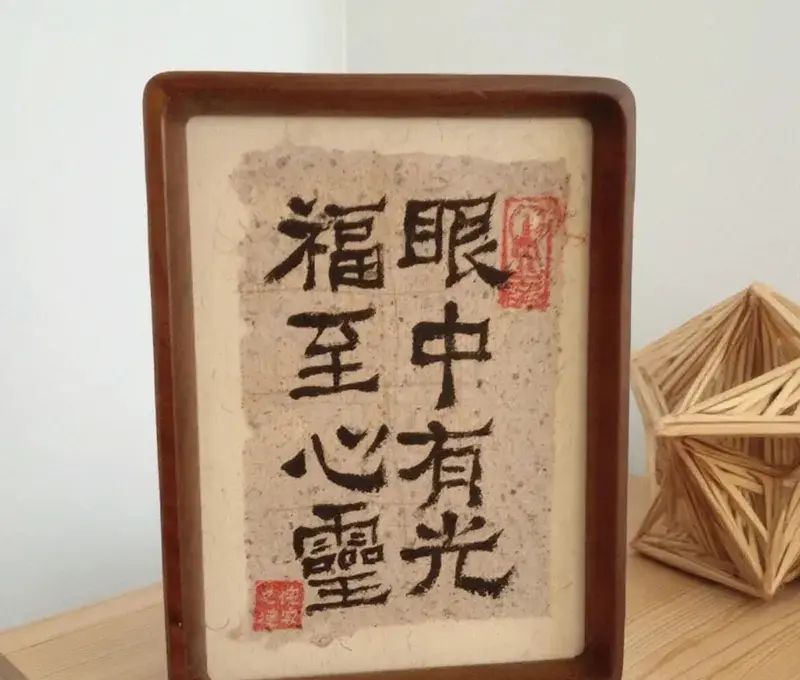 眼中有光
福至心靈